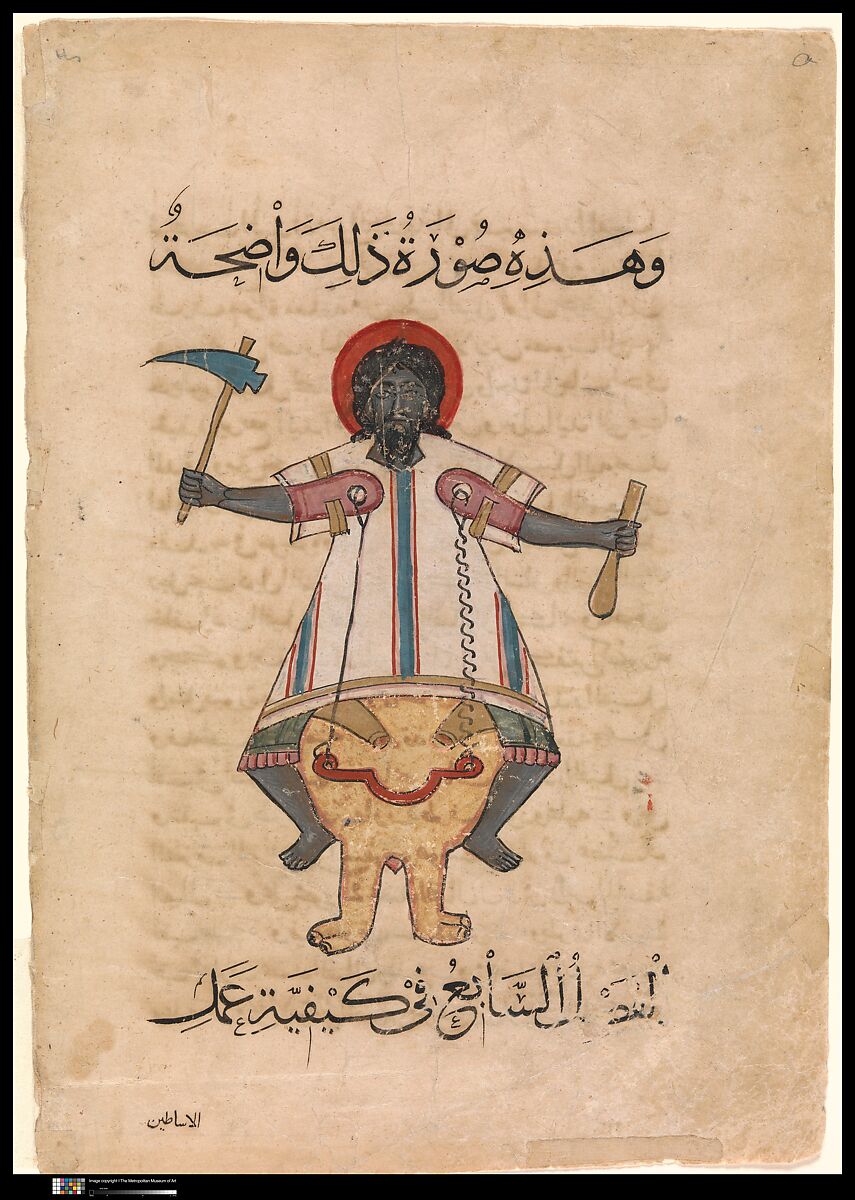 وَهَذِهِ صُوْرَةُ ذَلِكَ وَاضِحَةٌ
الفصل السَّابِعُ فِي كَيْفِيَّةِ عَمَلِ
الاساطين
Image copyright | The Metropolitan Museum of Art